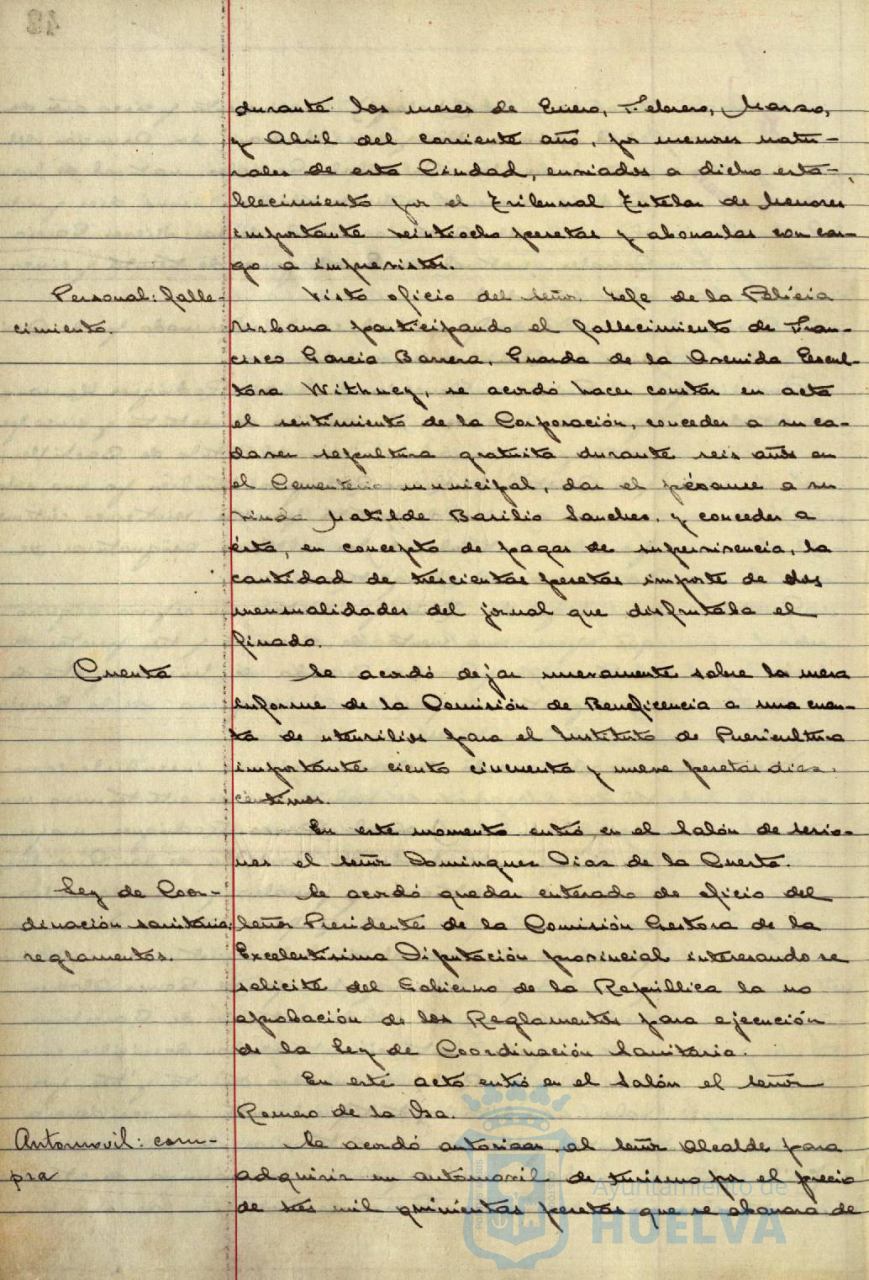 durante los meses de Enero, Febrero, Marzo,
y Abril del corriente año, por menores natu-
rales de esta Ciudad, enviados a dicho esta-
blecimiento por el Tribunal Tutelar de Menores
importante veintiocho pesetas y abonarlas con car-
go a imprevistos.
Personal: falle-
cimiento.
Visto oficio del señor Jefe de la Policia
Urbana participando el fallecimiento de Fran-
cisco Garcia Barrera, Guarda de la Avenida Escul-
tora Withney, se acordó hacer constar en acta
el sentimiento de la Corporación, conceder a su ca-
daver sepultura gratuita durante seis años en
el Cementerio municipal, dar el pésame a su
viuda Matilde Basilio Sanchez, y conceder a
ésta, en concepto de pagas de supervivencia, la
cantidad de trescientas pesetas importe de dos
mensualidades del jornal que disfrutaba el
finado.
Cuenta
Se acordó dejar nuevamente sobre la mesa
informe de la Comisión de Beneficencia a una cuen-
ta de utensilios para el Instituto de Puericultura
importante ciento cincuenta y nueve pesetas diez
céntimos.
En este momento entró en el Salón de sesio-
nes el señor Dominguez Diaz de la Cuesta.
Ley de Coor-
dinación sanitaria:
reglamentos.
Se acordó quedar enterado de oficio del
señor Presidente de la Comisión Gestora de la
Excelentisima Diputación provincial interesando se
solicite del Gobierno de la República la no
aprobación de los Reglamentos para ejecución
de la Ley de Coordinación Sanitaria.
En este acto entró en el Salón el señor
Romero de la Isa.
Automovil: com-
pra
Se acordó autorizar al señor Alcalde para
adquirir un automovil de turismo por el precio
de tres mil quinientas pesetas que se abonará de
Ayuntamiento de
HUELVA